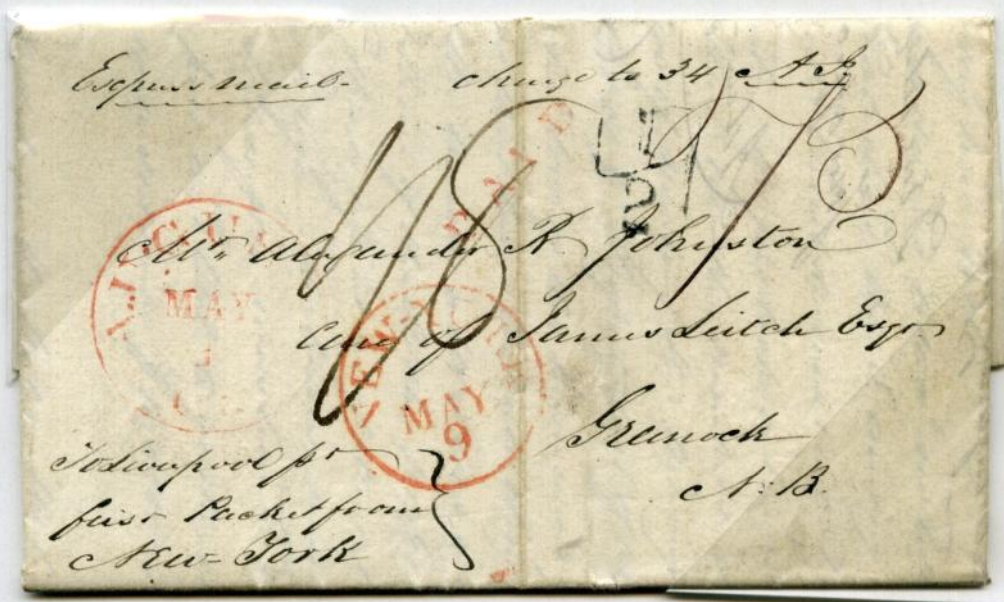 Express mail charge to 34 A J
PAID
1/8
Mr. Alexander R. Johnston
Care of James Leitch Esqr
NEW-YORK
MAY
9
MAY
Greenock
N. B.
To Liverpool pr
first Packet from
New-York